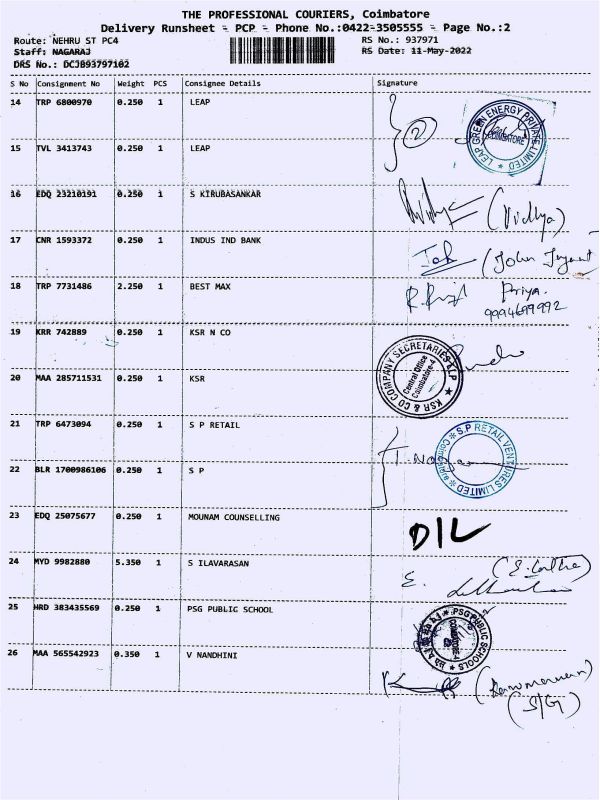 THE PROFESSIONAL COURIERS, Coimbatore
Delivery Runsheet - PCP - Phone No.:0422-3505555 - Page No.:2
Route: NEHRU ST PC4
RS No.: 937971
Staff: NAGARAJ
RS Date: 11-May-2022
DRS No.: DCJB93797102
S No Consignment No Weight PCS Consignee Details Signature
14 TRP 6800970 0.250 1 LEAP
2
LEAP GREEN ENERGY PRIVATE LIMITED
COIMBATORE
15 TVL 3413743 0.250 1 LEAP
16 EDQ 23210191 0.250 1 S KIRUBASANKAR
(Vidhya)
17 CNR 1593372 0.250 1 INDUS IND BANK
(John
18 TRP 7731486 2.250 1 BEST MAX
Priya.
9994699992
19 KRR 742889 0.250 1 KSR N CO
KSR & CO COMPANY SECRETARIES LLP
Central Office
Coimbatore-4
20 MAA 285711531 0.250 1 KSR
21 TRP 6473094 0.250 1 S P RETAIL
S.P RETAIL VENTURES LIMITED
Coimbatore
22 BLR 1700986106 0.250 1 S P
23 EDQ 25075677 0.250 1 MOUNAM COUNSELLING
DIL
24 MYD 9982880 5.350 1 S ILAVARASAN
E.
25 HRD 383435569 0.250 1 PSG PUBLIC SCHOOL
PSG PUBLIC SCHOOLS
COIMBATORE
26 MAA 565542923 0.350 1 V NANDHINI
(S/G)